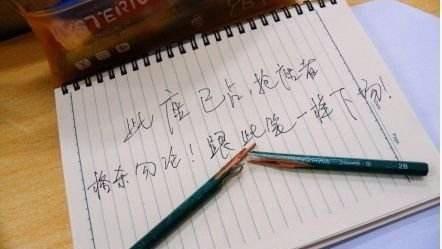 MYSTERIUM
此座已占，抢座者
格杀勿论！跟此笔一样下场！
2B